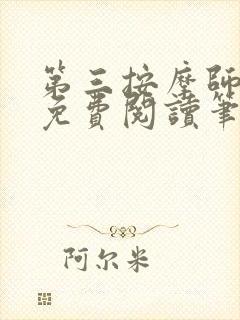 第三按摩師
免費閱讀筆
阿尔米